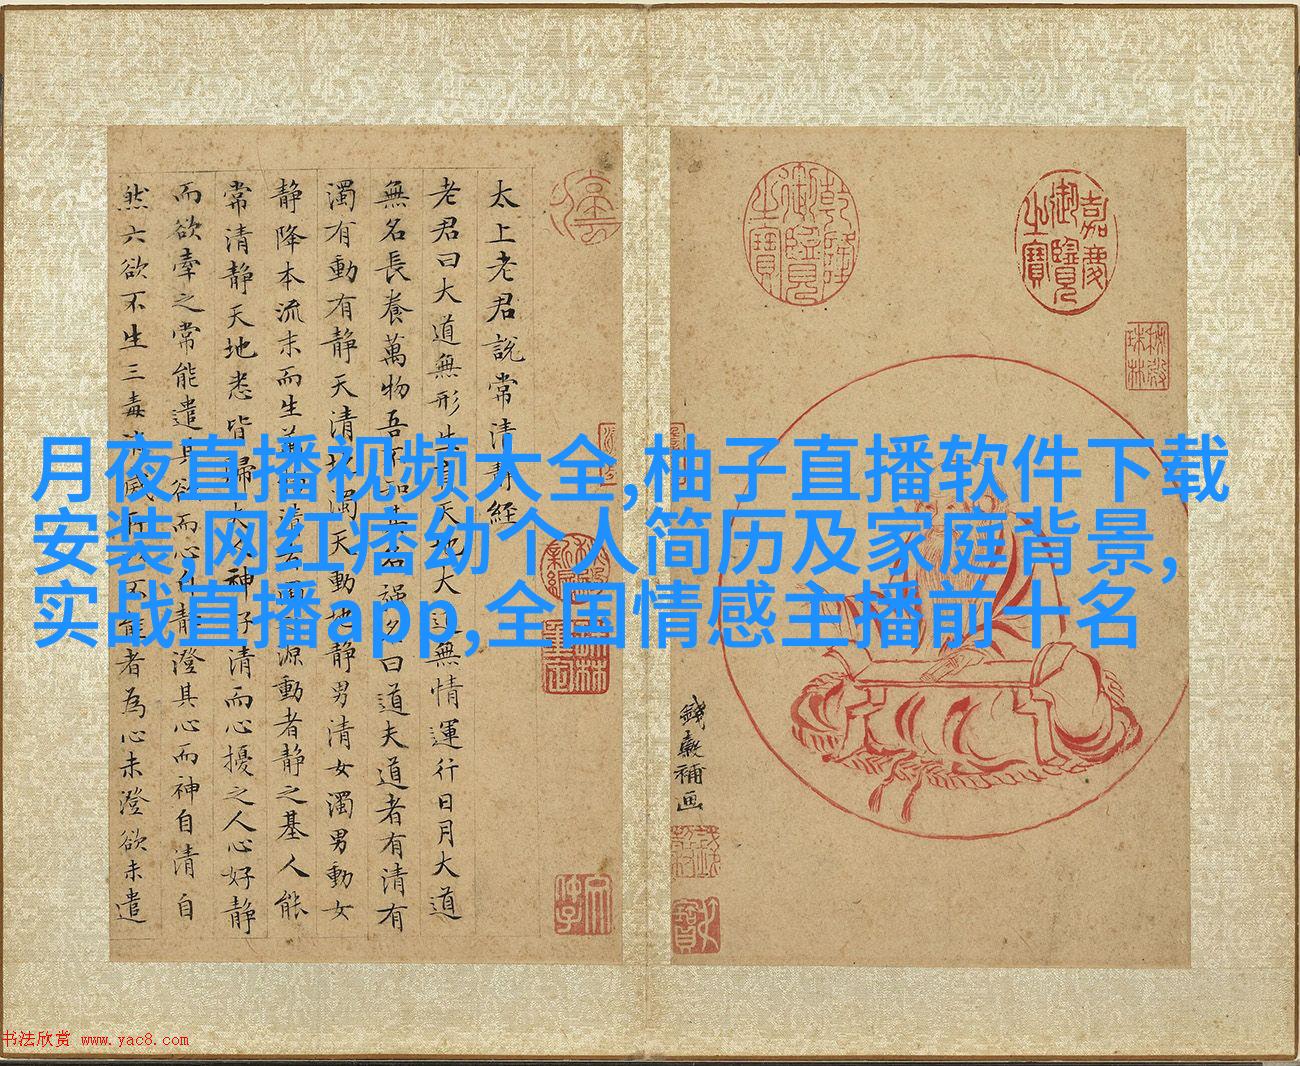 太上老君説常清静經
老君曰大道無形生育天地大道無情運行日月大道
無名長養萬物吾不知其名強名曰道夫道者有清有
濁有動有静天清地濁天動地静男清女濁男動女
静降本流末而生萬物清者濁之源動者静之基人能
常清静天地悉皆歸夫人神好清而心擾之人心好静
而欲牽之常能遣其欲而心自静澄其心而神自清自
然六欲不生三毒消滅所以不能者為心未澄欲未遣
乾隆御覽之寶
嘉慶御覽之寶
秘殿珠林
錢穀補画
月夜直播视频大全,柚子直播软件下载
安装,网红痞幼个人简历及家庭背景,
实战直播app,全国情感主播前十名
书法欣赏 www.yac8.com